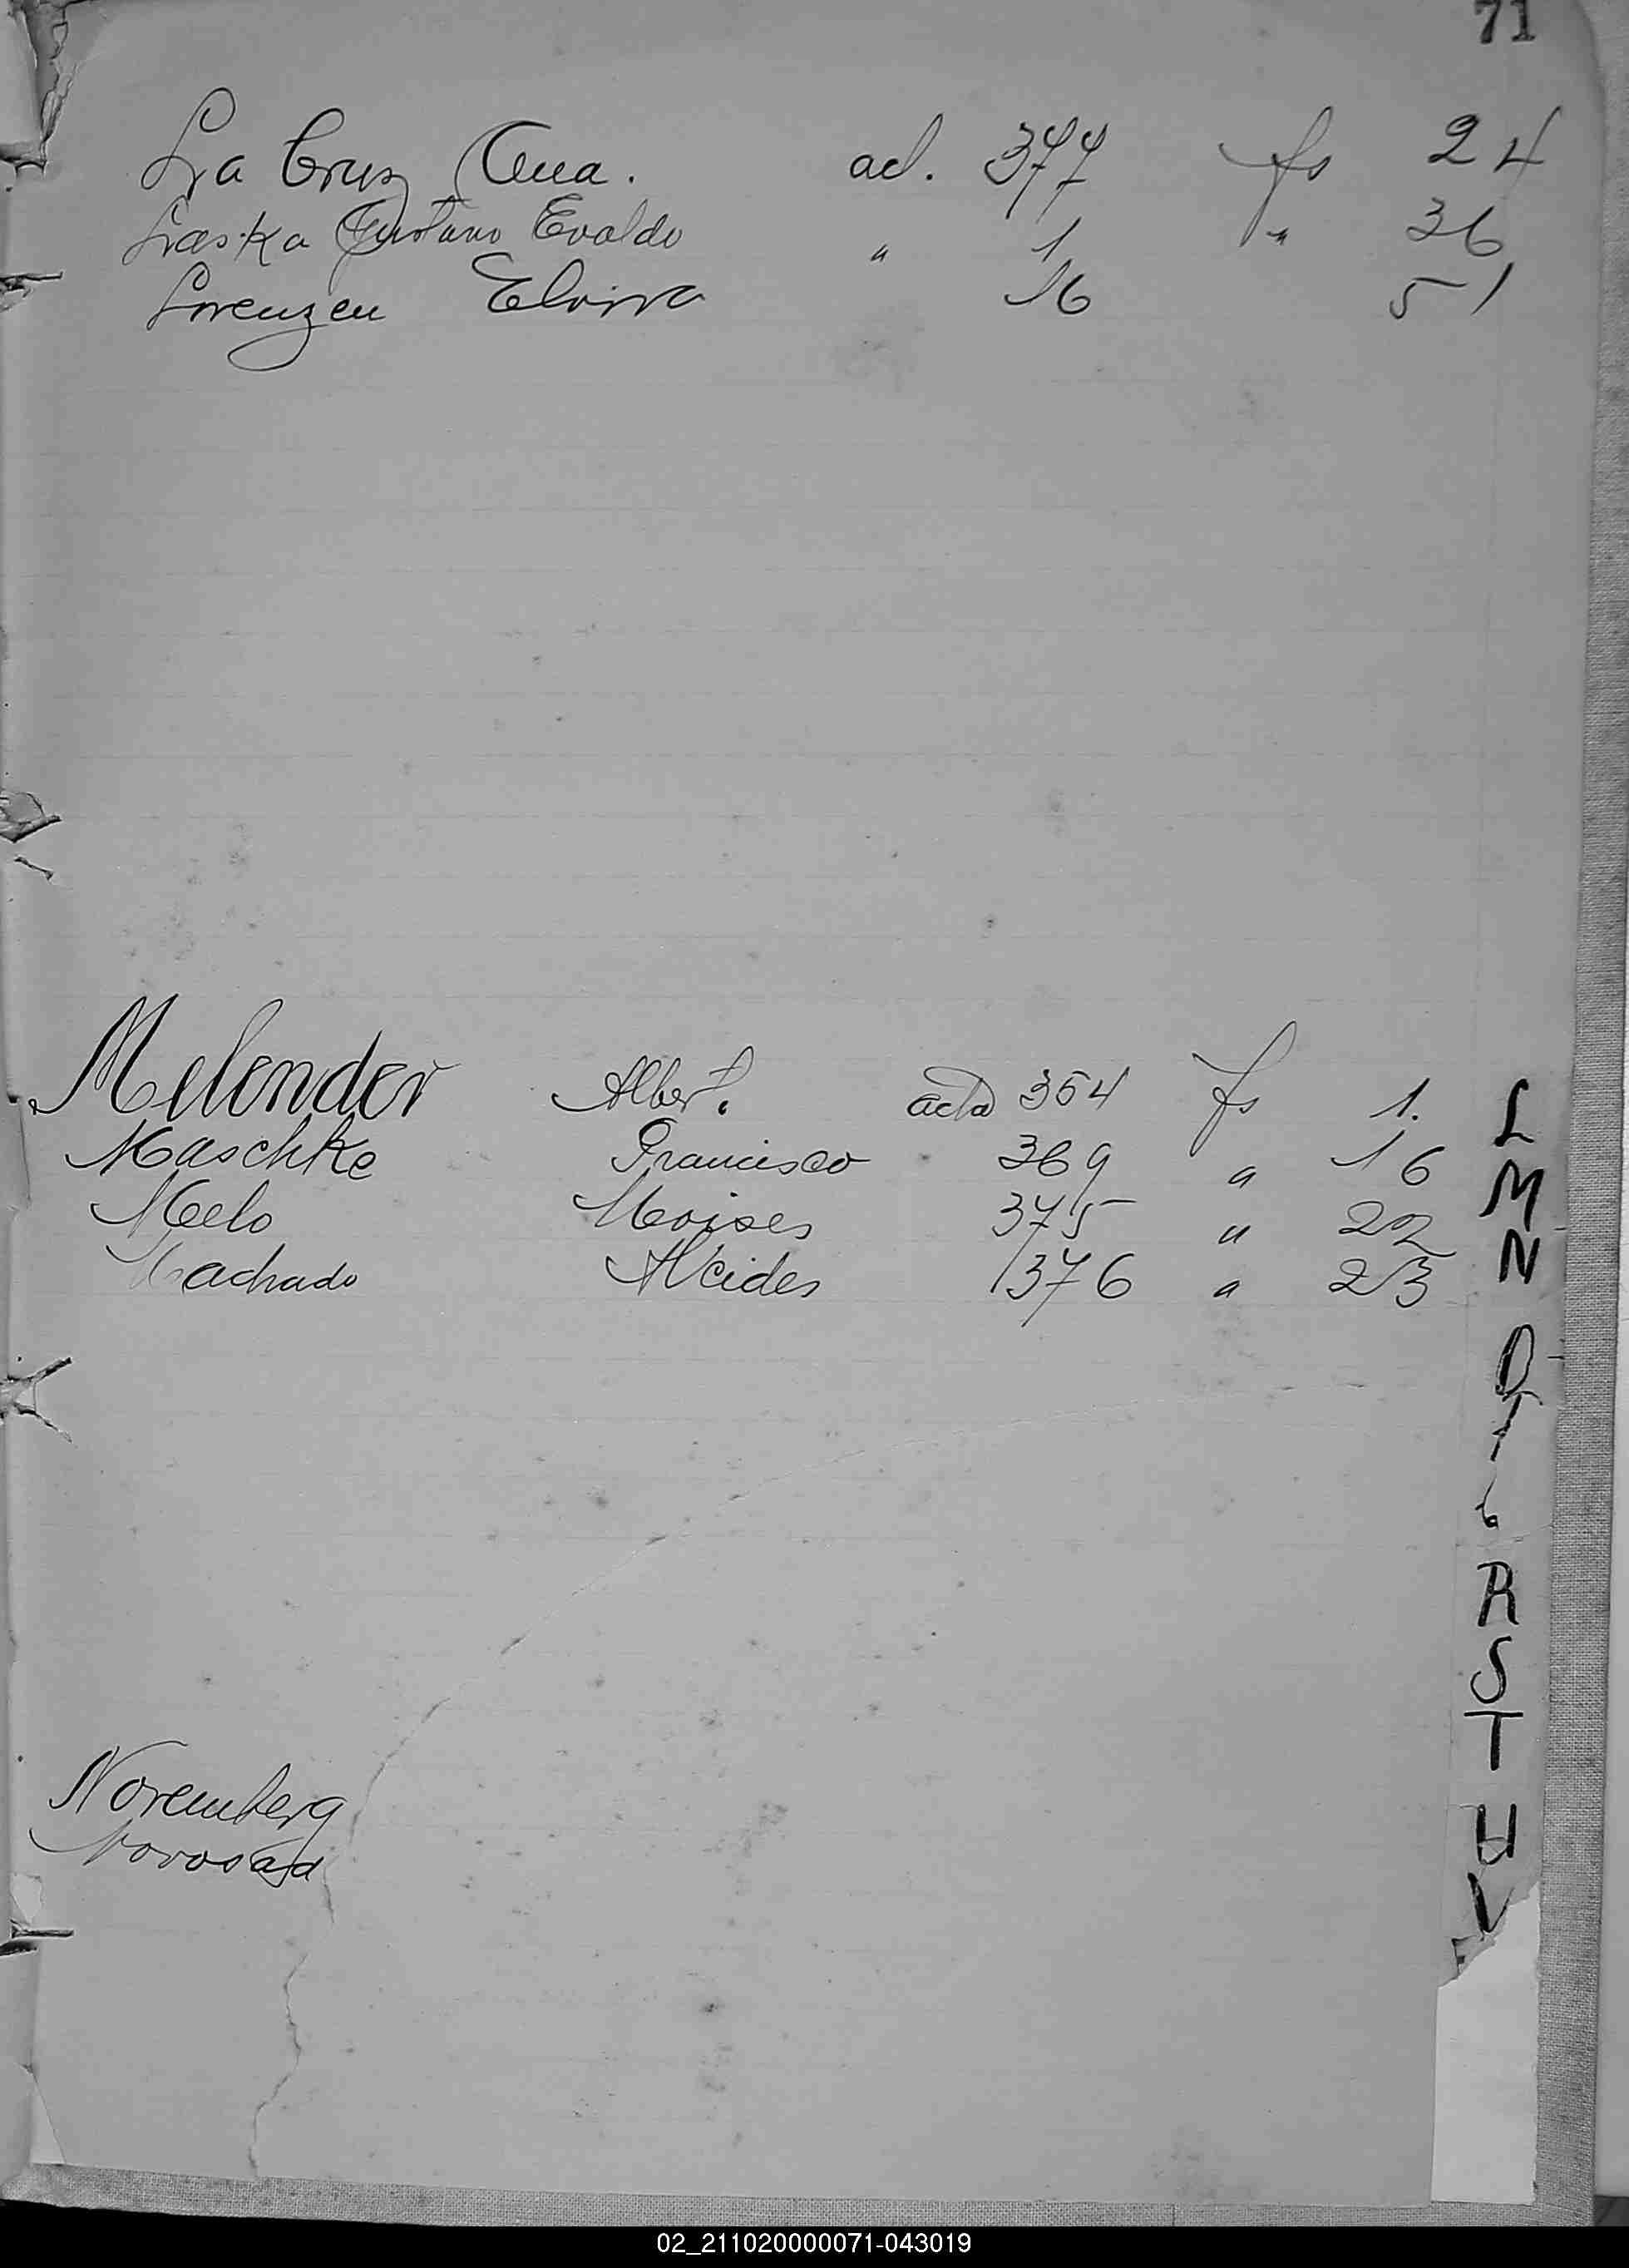 71
La Cruz Ana. act. 377 fs 24
Laska Gustavo Evaldo " 1 " 36
Lorenzen Elvira 16 51
Melender Albert. acta 354 fs 1.
Maschke Francisco 369 " 16
Melo Moises 375 " 22
Machado Alcides 376 " 23
Noremberg
Novosad
L
M
N
O
R
S
T
U
V
02_211020000071-043019